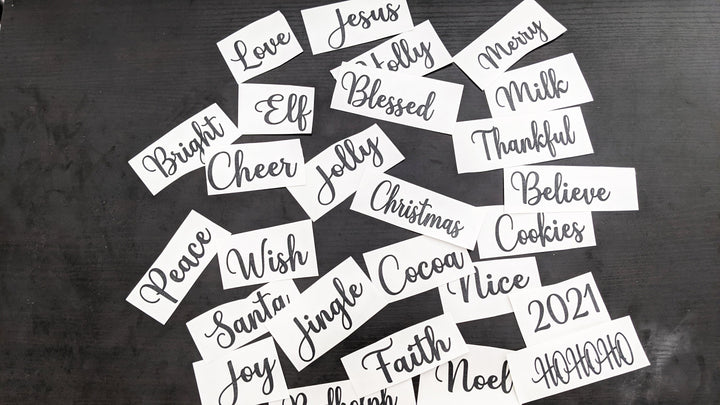 Love
Jesus
Holly
Merry
Blessed
Milk
Elf
Bright
Thankful
Cheer
Jolly
Believe
Christmas
Cookies
Peace
Wish
Cocoa
Nice
Santa
Jingle
2021
Joy
Faith
Noel
HOHOHO
Rudolph